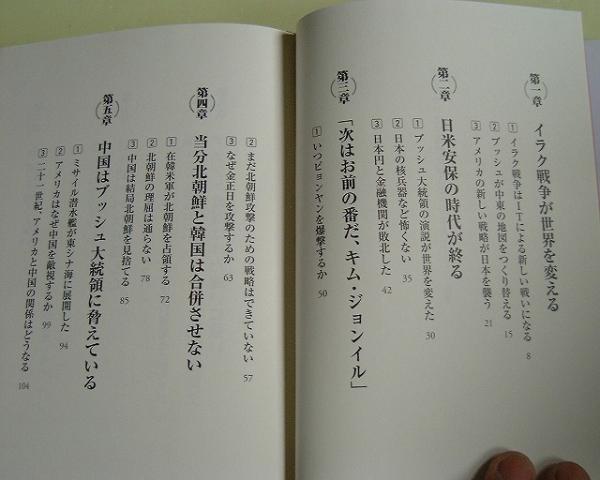 第一章 イラク戦争が世界を変える
1 イラク戦争はITによる新しい戦いになる 8
2 ブッシュが中東の地図をつくり替える 15
3 アメリカの新しい戦略が日本を襲う 21
第二章 日米安保の時代が終る
1 ブッシュ大統領の演説が世界を変えた 30
2 日本の核兵器など怖くない 35
3 日本円と金融機関が敗北した 42
第三章 「次はお前の番だ、キム・ジョンイル」
1 いつピョンヤンを爆撃するか 50
2 まだ北朝鮮攻撃のための戦略はできていない 57
3 なぜ金正日を攻撃するか 63
第四章 当分北朝鮮と韓国は合併させない
1 在韓米軍が北朝鮮を占領する 72
2 北朝鮮の理屈は通らない 78
3 中国は結局北朝鮮を見捨てる 85
第五章 中国はブッシュ大統領に脅えている
1 ミサイル潜水艦が東シナ海に展開した 94
2 アメリカはなぜ中国を敵視するか 99
3 二十一世紀、アメリカと中国の関係はどうなる 104